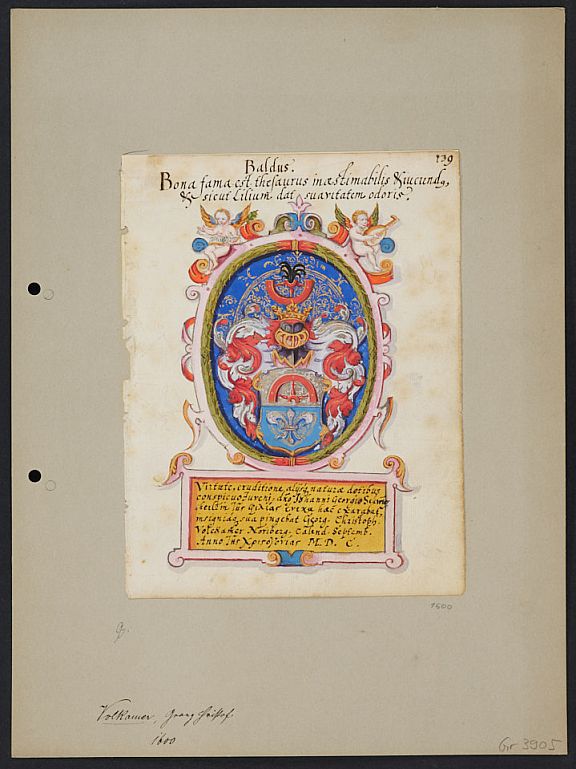 Baldus.
139
Bona fama est thesaurus inæstimabilis & iucundꝯ,
& sicut Lilium dat suavitatem odoris.
Virtute, eruditione, alijsq̃ naturæ dotibus
conspicuo Juveni, dño Johanni Georgio
insignia sua pingebat Georg. Christoph.
Volckamer Noriberg. Caland. Septemb.
Anno M. D. C.
1600
Volkamer, Georg Christof.
1600
Gr 3905